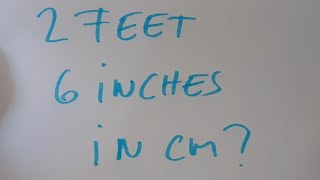 2 FEET
6 iNCHES
iN cm?